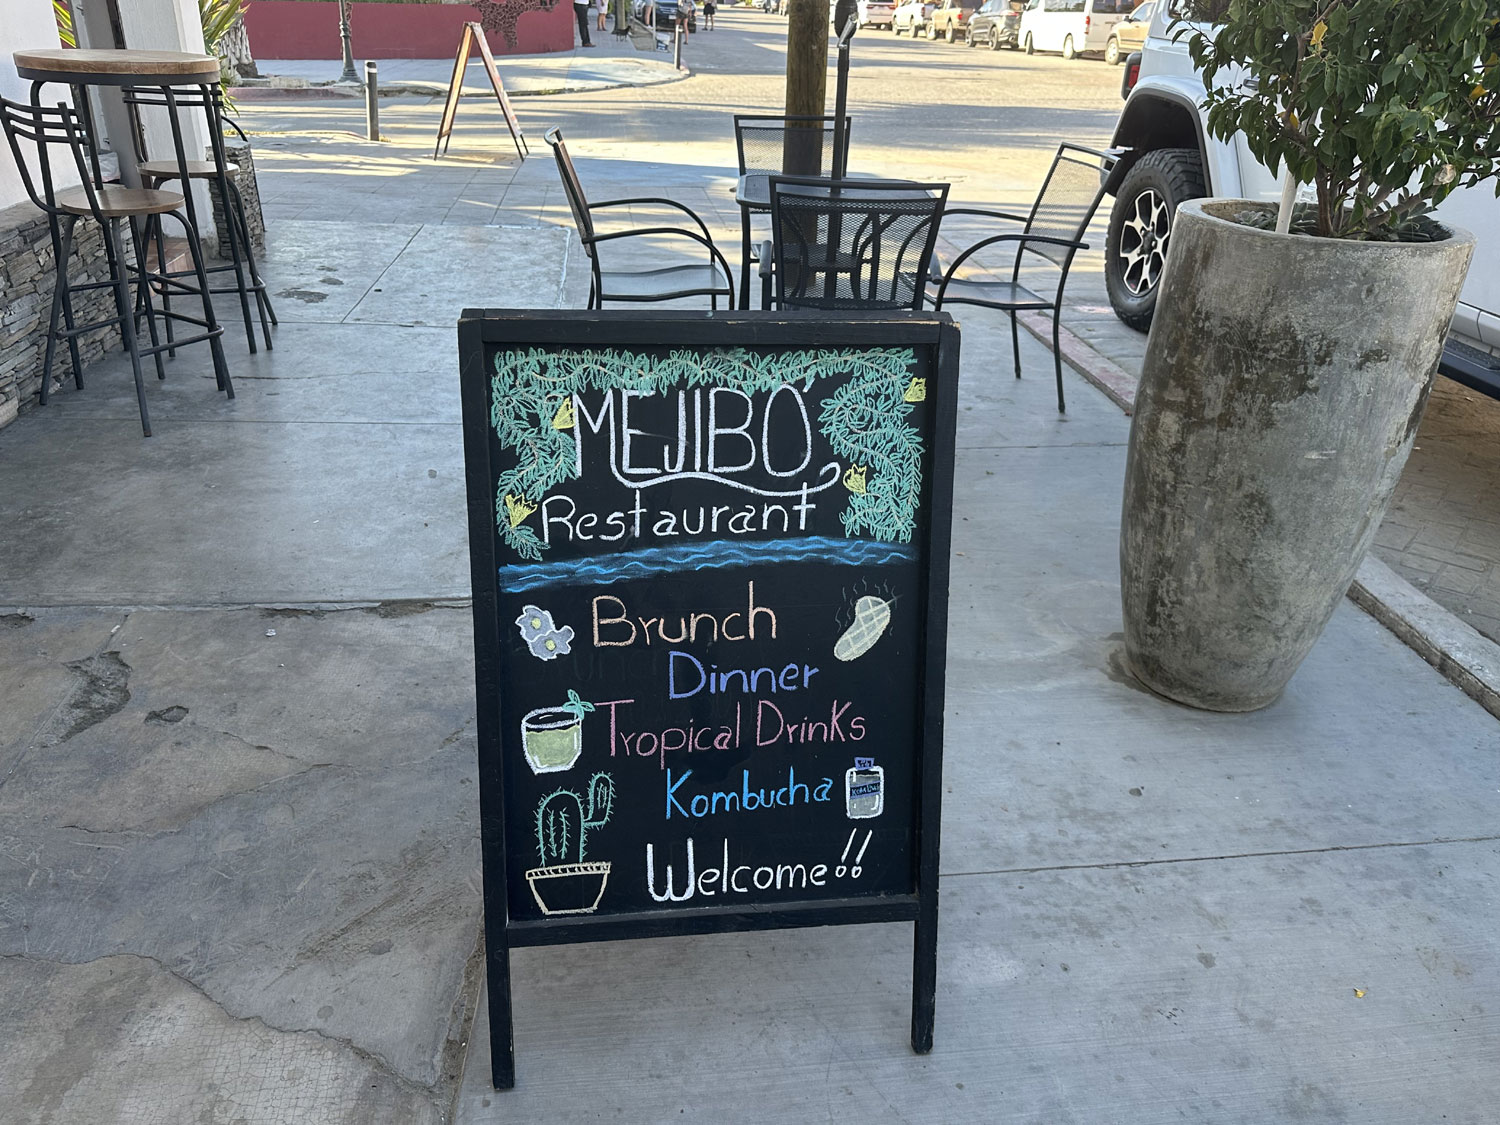 MEJIBÓ
Restaurant
Brunch
Dinner
Tropical Drinks
Kombucha
Welcome!!